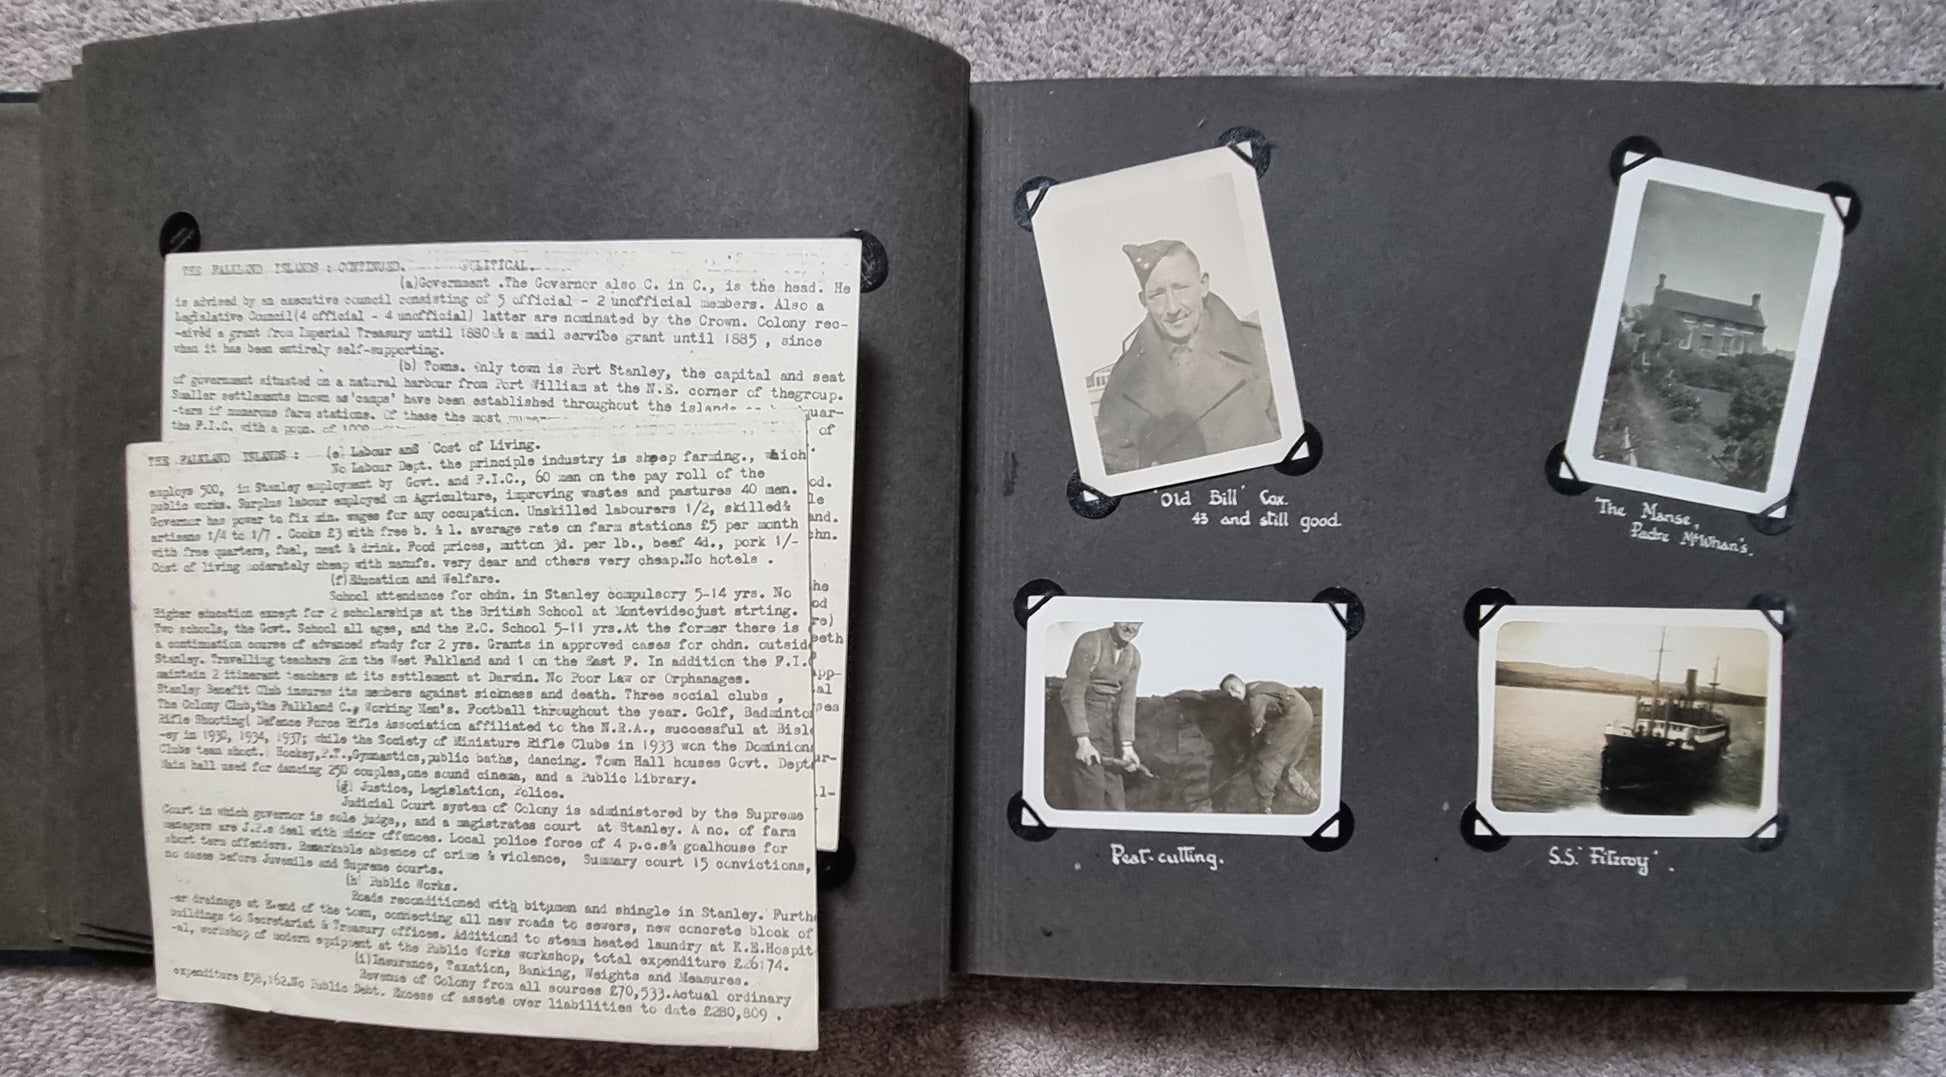 THE FALKLAND ISLANDS : CONTINUED. POLITICAL.
(a)Government .The Governor also C. in C., is the head. He
is advised by an executive council consisting of 5 official - 2 unofficial members. Also a
Legislative Council(4 official - 4 unofficial) latter are nominated by the Crown. Colony rec-
-eived a grant from Imperial Treasury until 1880 & a mail service grant until 1885 , since
when it has been entirely self-supporting.
(b) Towns. Only town is Port Stanley, the capital and seat
of government situated on a natural harbour from Port William at the N.E. corner of thegroup.
Smaller settlements known as 'camps' have been established throughout the islands
-ters if numerous farm stations. Of these the most
the F.I.C. with a popn. of 1000
quar-
of
THE FALKLAND ISLANDS : (e) Labour and Cost of Living.
No Labour Dept. the principle industry is sheep farming., which
employs 500, in Stanley employment by Govt. and F.I.C., 60 men on the pay roll of the
public works. Surplus labour employed on Agriculture, improving wastes and pastures 40 men.
Governor has power to fix min. wages for any occupation. Unskilled labourers 1/2, skilled
artisans 1/4 to 1/7 . Cooks £3 with free b. & l. average rate on farm stations £5 per month
with free quarters, fuel, meat & drink. Food prices, mutton 3d. per lb., beef 4d., pork 1/-
Cost of living moderately cheap with manufs. very dear and others very cheap.No hotels .
(f)Education and Welfare.
School attendance for chdn. in Stanley compulsory 5-14 yrs. No
Higher education except for 2 scholarships at the British School at Montevideojust strting.
Two schools, the Govt. School all ages, and the R.C. School 5-11 yrs.At the former there is
a continuation course of advanced study for 2 yrs. Grants in approved cases for chdn. outside
Stanley. Travelling teachers 2on the West Falkland and 1 on the East F. In addition the F.I.C
maintain 2 itinerant teachers at its settlement at Darwin. No Poor Law or Orphanages.
Stanley Benefit Club insures its members against sickness and death. Three social clubs ,
The Colony Club,the Falkland C., Working Men's. Football throughout the year. Golf, Badminto
Rifle Shooting( Defence Force Rifle Association affiliated to the N.R.A., successful at Bisl
-ey in 1930, 1934, 1937; while the Society of Miniature Rifle Clubs in 1933 won the Dominion
Clubs team shoot.) Hockey,P.T.,Gymnastics,public baths, dancing. Town Hall houses Govt. Dept
Main hall used for dancing 250 couples,one sound cinema, and a Public Library.
(g) Justice, Legislation, Police.
Judicial Court system of Colony is administered by the Supreme
Court in which governor is sole judge,, and a magistrates court at Stanley. A no. of farm
managers are J.P.s deal with minor offences. Local police force of 4 p.c.s& goalhouse for
short term offenders. Remarkable absence of crime & violence, Summary court 15 convictions,
no cases before Juvenile and Supreme courts.
(h) Public Works.
Roads reconditioned with bitumen and shingle in Stanley. Furth
-er drainage at E.end of the town, connecting all new roads to sewers, new concrete block of
buildings to Secretariat & Treasury offices. Additiond to steam heated laundry at K.E.Hospit
-al, workshop of modern equipment at the Public Works workshop, total expenditure £26174.
(i)Insurance, Taxation, Banking, Weights and Measures.
Revenue of Colony from all sources £70,533.Actual ordinary
expenditure £58,162.No Public Debt. Excess of assets over liabilities to date £280,809 .
'Old Bill' Cox.
43 and still good.
The Manse,
Padre McWhan's.
Peat-cutting.
S.S. 'Fitzroy'.